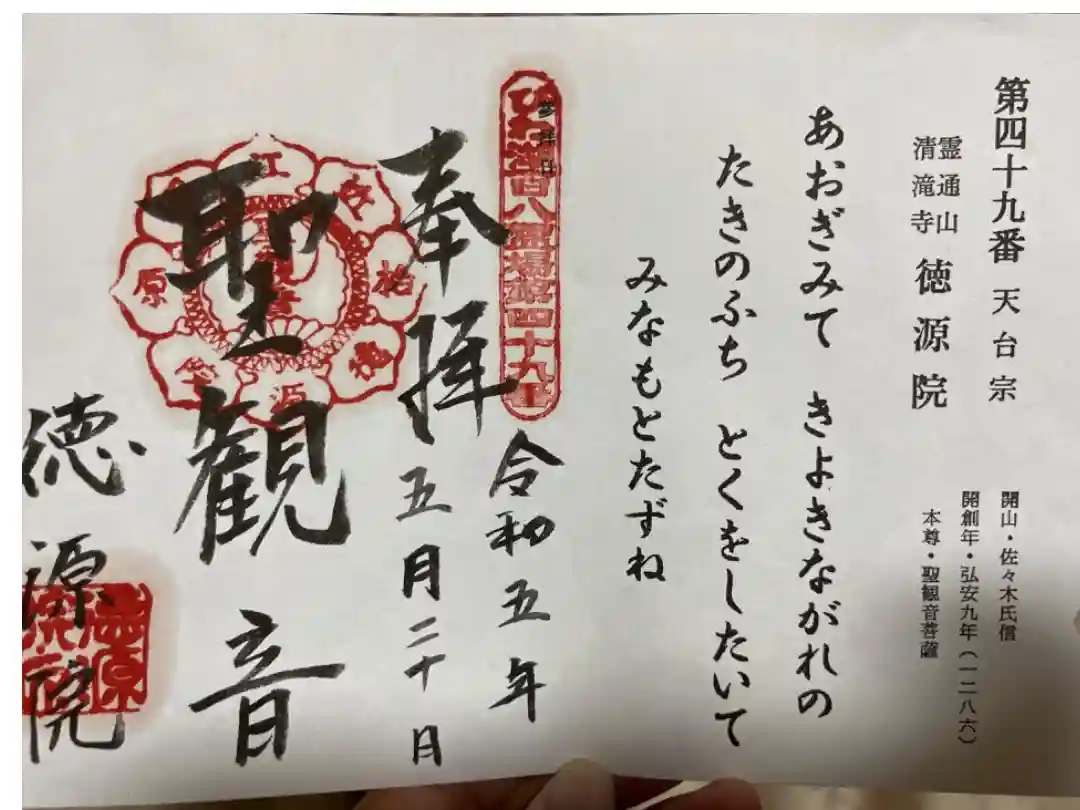 第四十九番 天台宗
霊通山
清滝寺 徳源院
開山・佐々木氏信
開創年・弘安九年(一二八六)
本尊・聖観音菩薩
あおぎみて きよきながれの
たきのふち とくをしたいて
みなもとたずね
参拝日
びわ湖百八霊場第四十九番
令和五年
五月二十日
奉拝
聖観音
徳源院